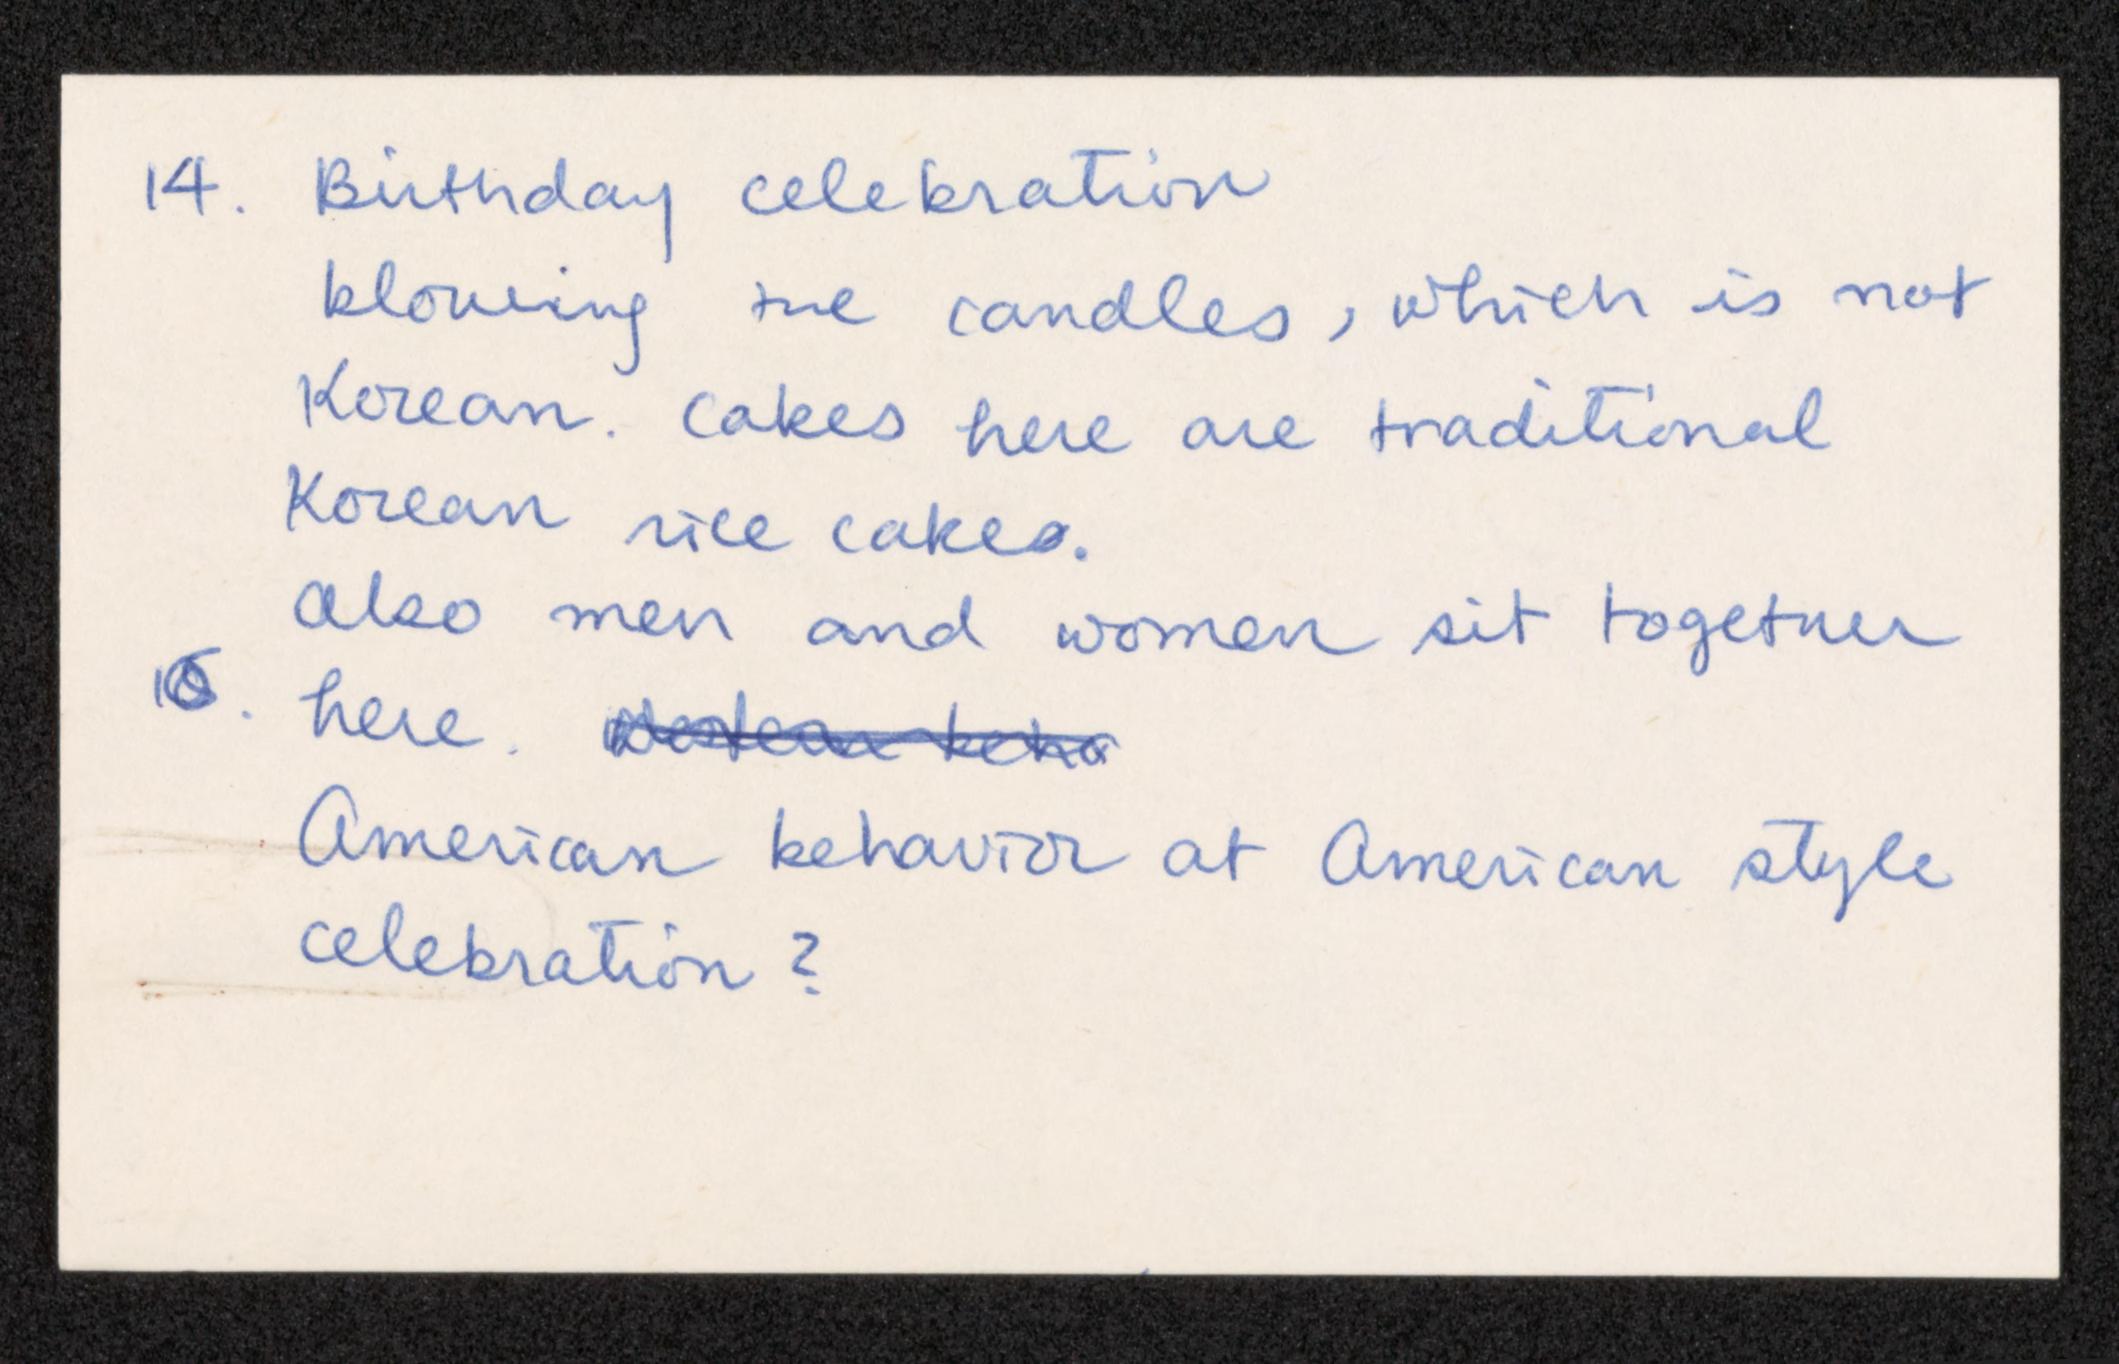 14. Birthday celebration
blowing the candles, which is not
Korean. Cakes here are traditional
Korean rice cakes.
Also men and women sit together
here.
American behavior at American style
celebration?